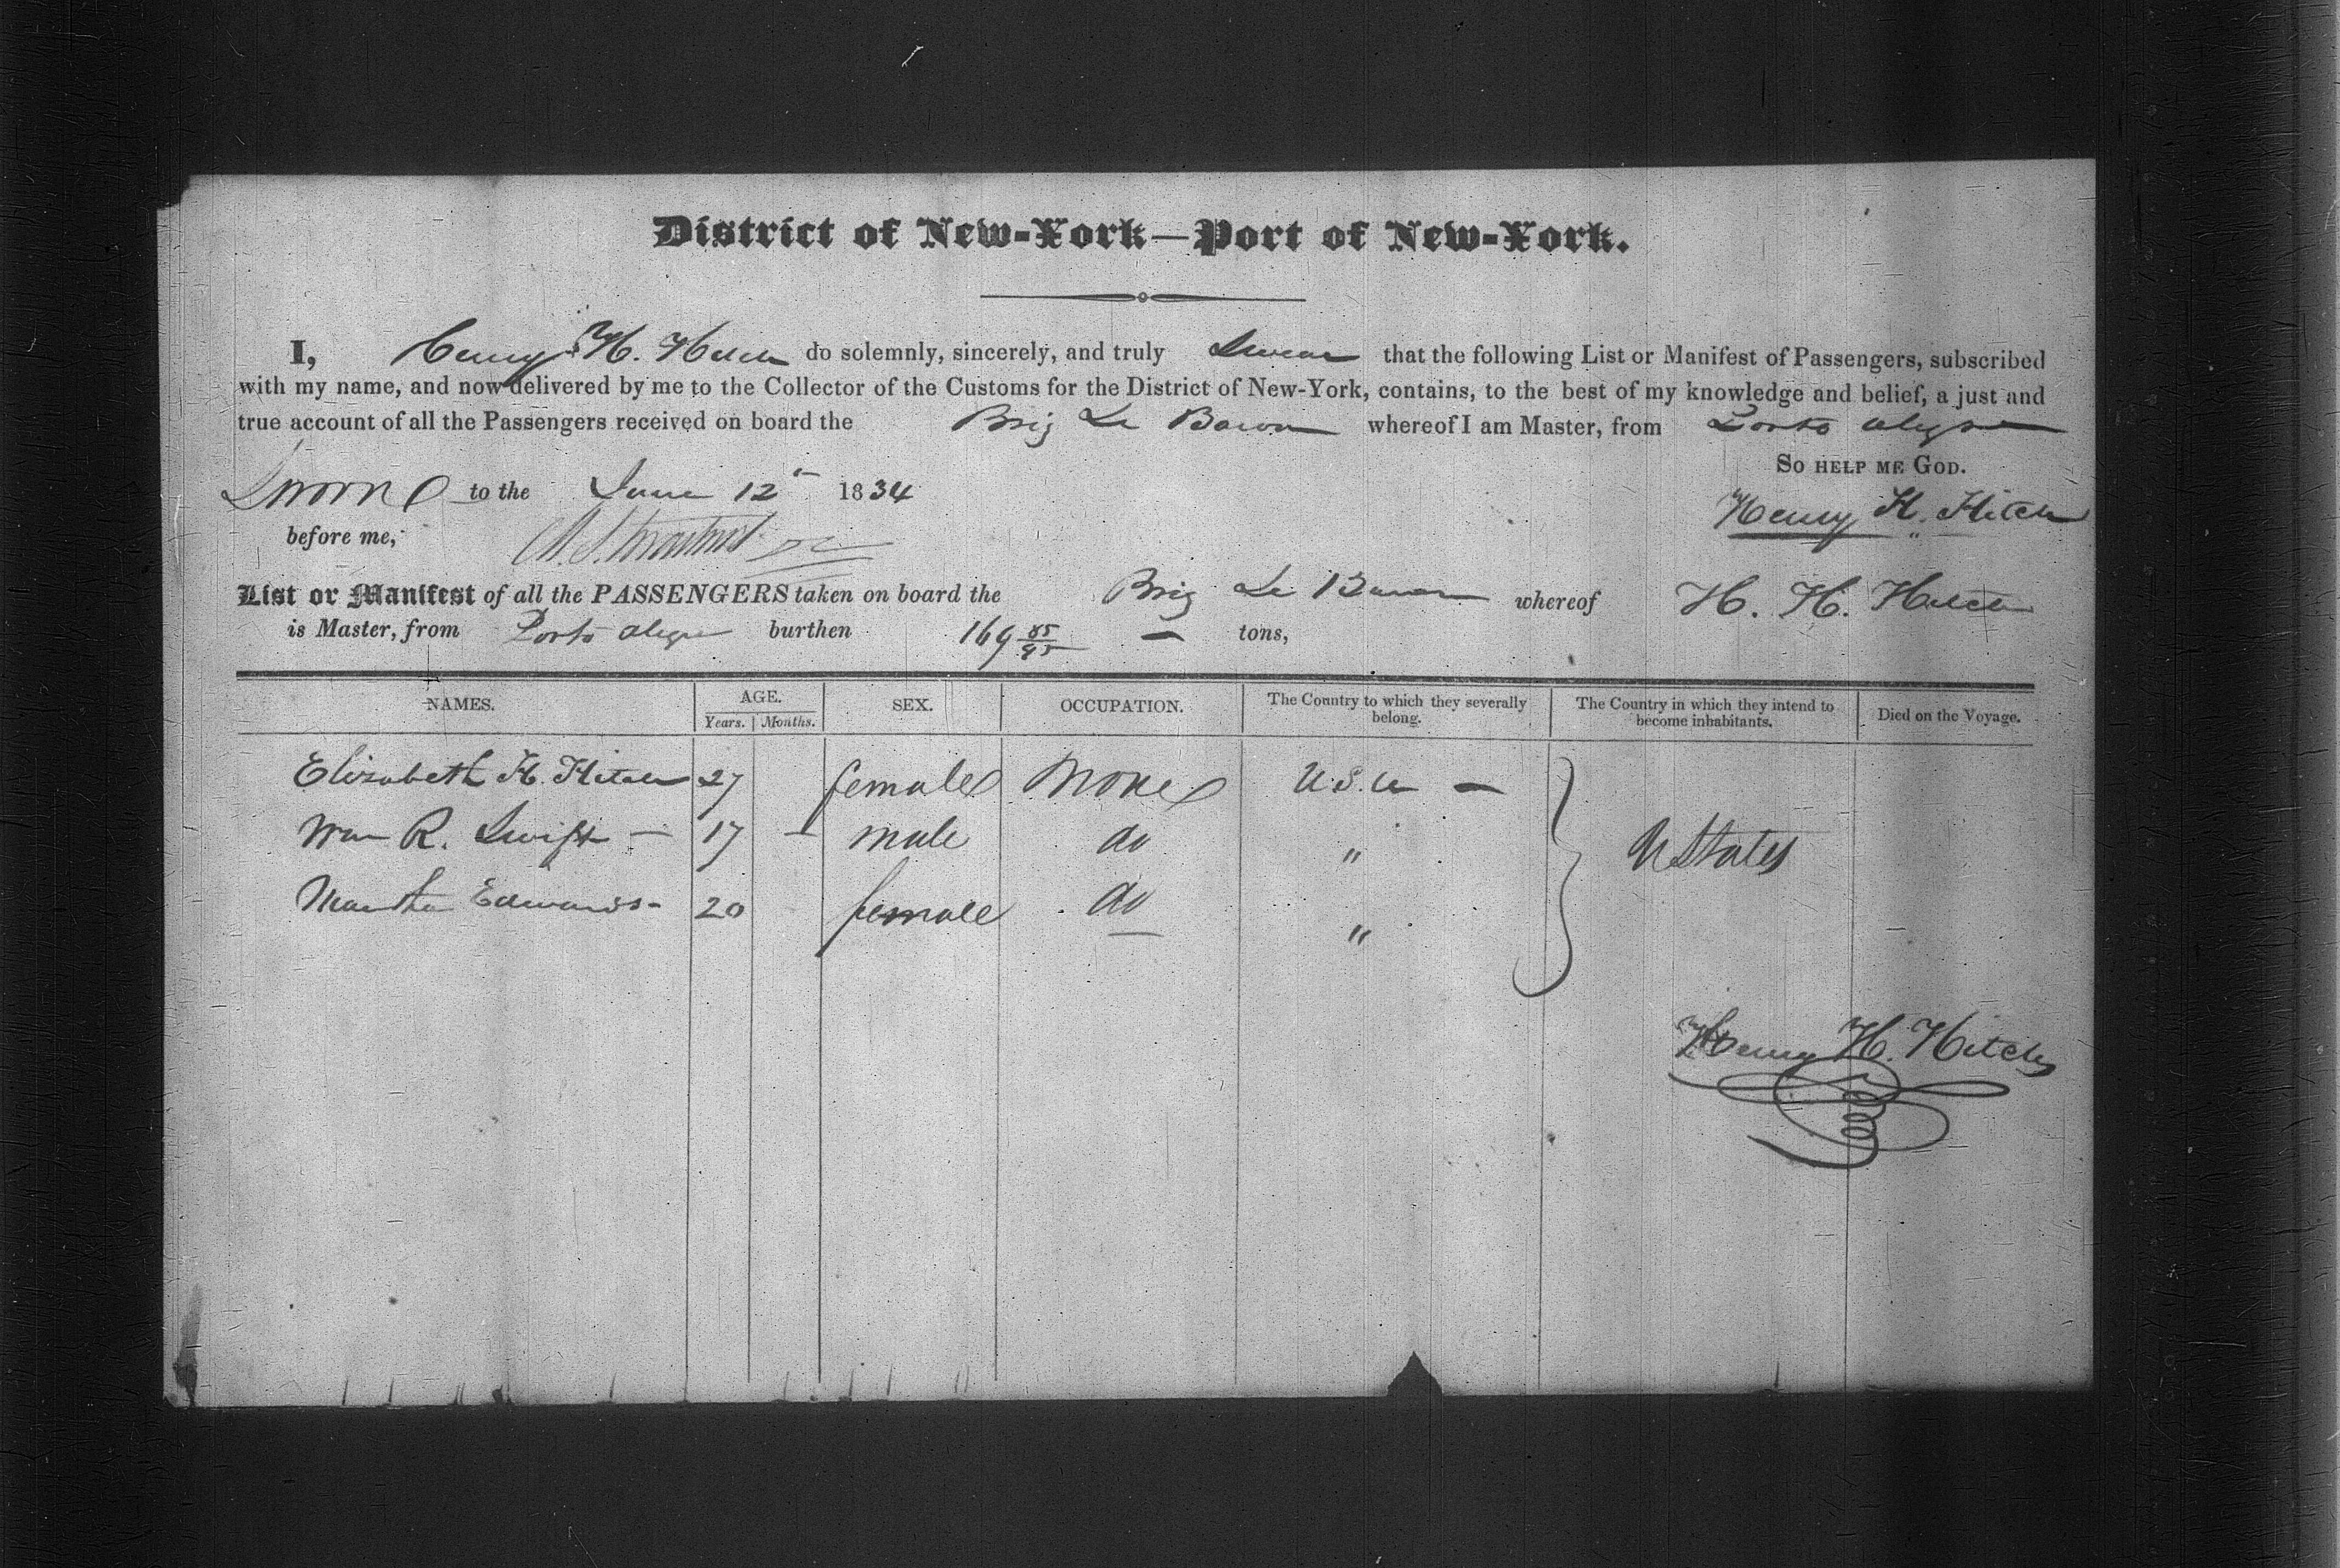 District of New-York—Port of New-York.
I, Henry H. Hitch do solemnly, sincerely, and truly Swear that the following List or Manifest of Passengers, subscribed
with my name, and now delivered by me to the Collector of the Customs for the District of New-York, contains, to the best of my knowledge and belief, a just and
true account of all the Passengers received on board the Brig Le Baron whereof I am Master, from Porto Alegre
So help me God.
Sworn to the June 12" 1834
Henry H. Hitch
before me,
List or Manifest of all the PASSENGERS taken on board the Brig Le Baron whereof H. H. Hitch
is Master, from Porto Alegre burthen 169 85/95 — tons,
NAMES. AGE. SEX. OCCUPATION. The Country to which they severally belong. The Country in which they intend to become inhabitants. Died on the Voyage.
Years. Months.
Elizabeth H. Hitch 27 female None U.S.A —
Wm R. Swift — 17 — male do " U States
Martha Edwards - 20 female do "
Henry H. Hitch